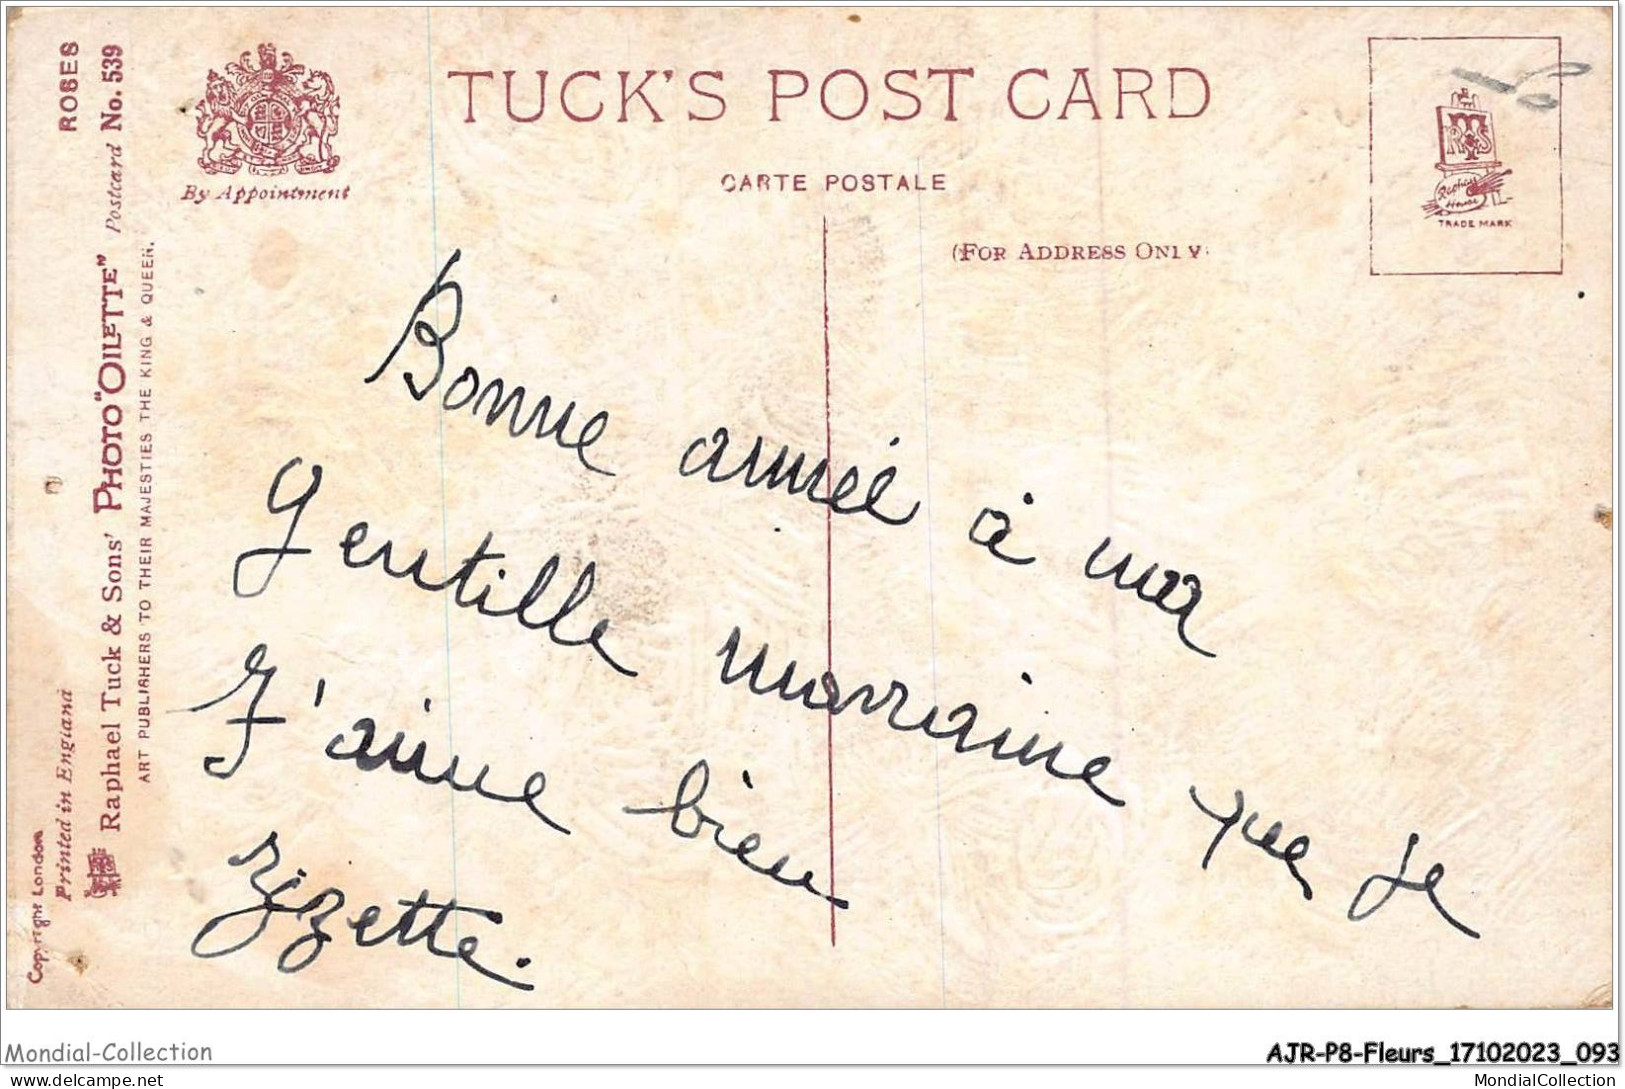 TUCK'S POST CARD
CARTE POSTALE
(FOR ADDRESS ONLY)
By Appointment
RTS
Raphael
House
TRADE MARK
ROSES
Postcard No. 539
Raphael Tuck & Sons' PHOTO "OILETTE"
ART PUBLISHERS TO THEIR MAJESTIES THE KING & QUEEN.
Printed in England
Copyright London
Bonne année à ma
Gentille marraine que je
J'aime bien
Zizette.
Mondial-Collection
AJR-P8-Fleurs_17102023_093
www.delcampe.net
MondialCollection